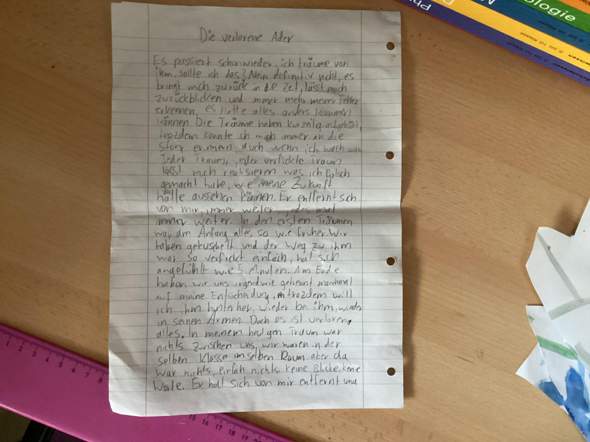 Die verlorene Ader
Es passiert schon wieder, ich träume von
ihm, sollte ich das? Nein definitiv nicht, es
bringt mich zurück in die Zeit, lässt mich
zurückblicken und immer mehr meiner Fehler
erkennen, es hätte alles anders kommen
können. Die Träume haben kurzzeitig aufgehört,
trotzdem konnte ich mich immer an die
Story erinnern, auch wenn ich wach war.
Jeder Traum, jeder verfickte Traum
lässt mich realisieren was ich falsch
gemacht habe, wie meine Zukunft
hätte aussehen können. Er entfernt sich
von mir, immer weiter und
immer weiter. In den ersten Träumen
war am Anfang alles so wie früher. Wir
haben gekuschelt und der Weg zu ihm
war so verfickt einfach, hat sich
angefühlt wie 5 Minuten. Am Ende
haben wir uns irgendwie getrennt manchmal
auf meine Entscheidung, trotzdem will
ich ihm hinterher, wieder bei ihm, wieder
in seinen Armen. Doch es ist verloren,
alles. In meinem heutigen Traum war
nichts zwischen uns, wir waren in der
selben Klasse im selben Raum aber da
war nichts, einfach nichts keine Blicke, keine
Worte. Er hat sich von mir entfernt und
ologie